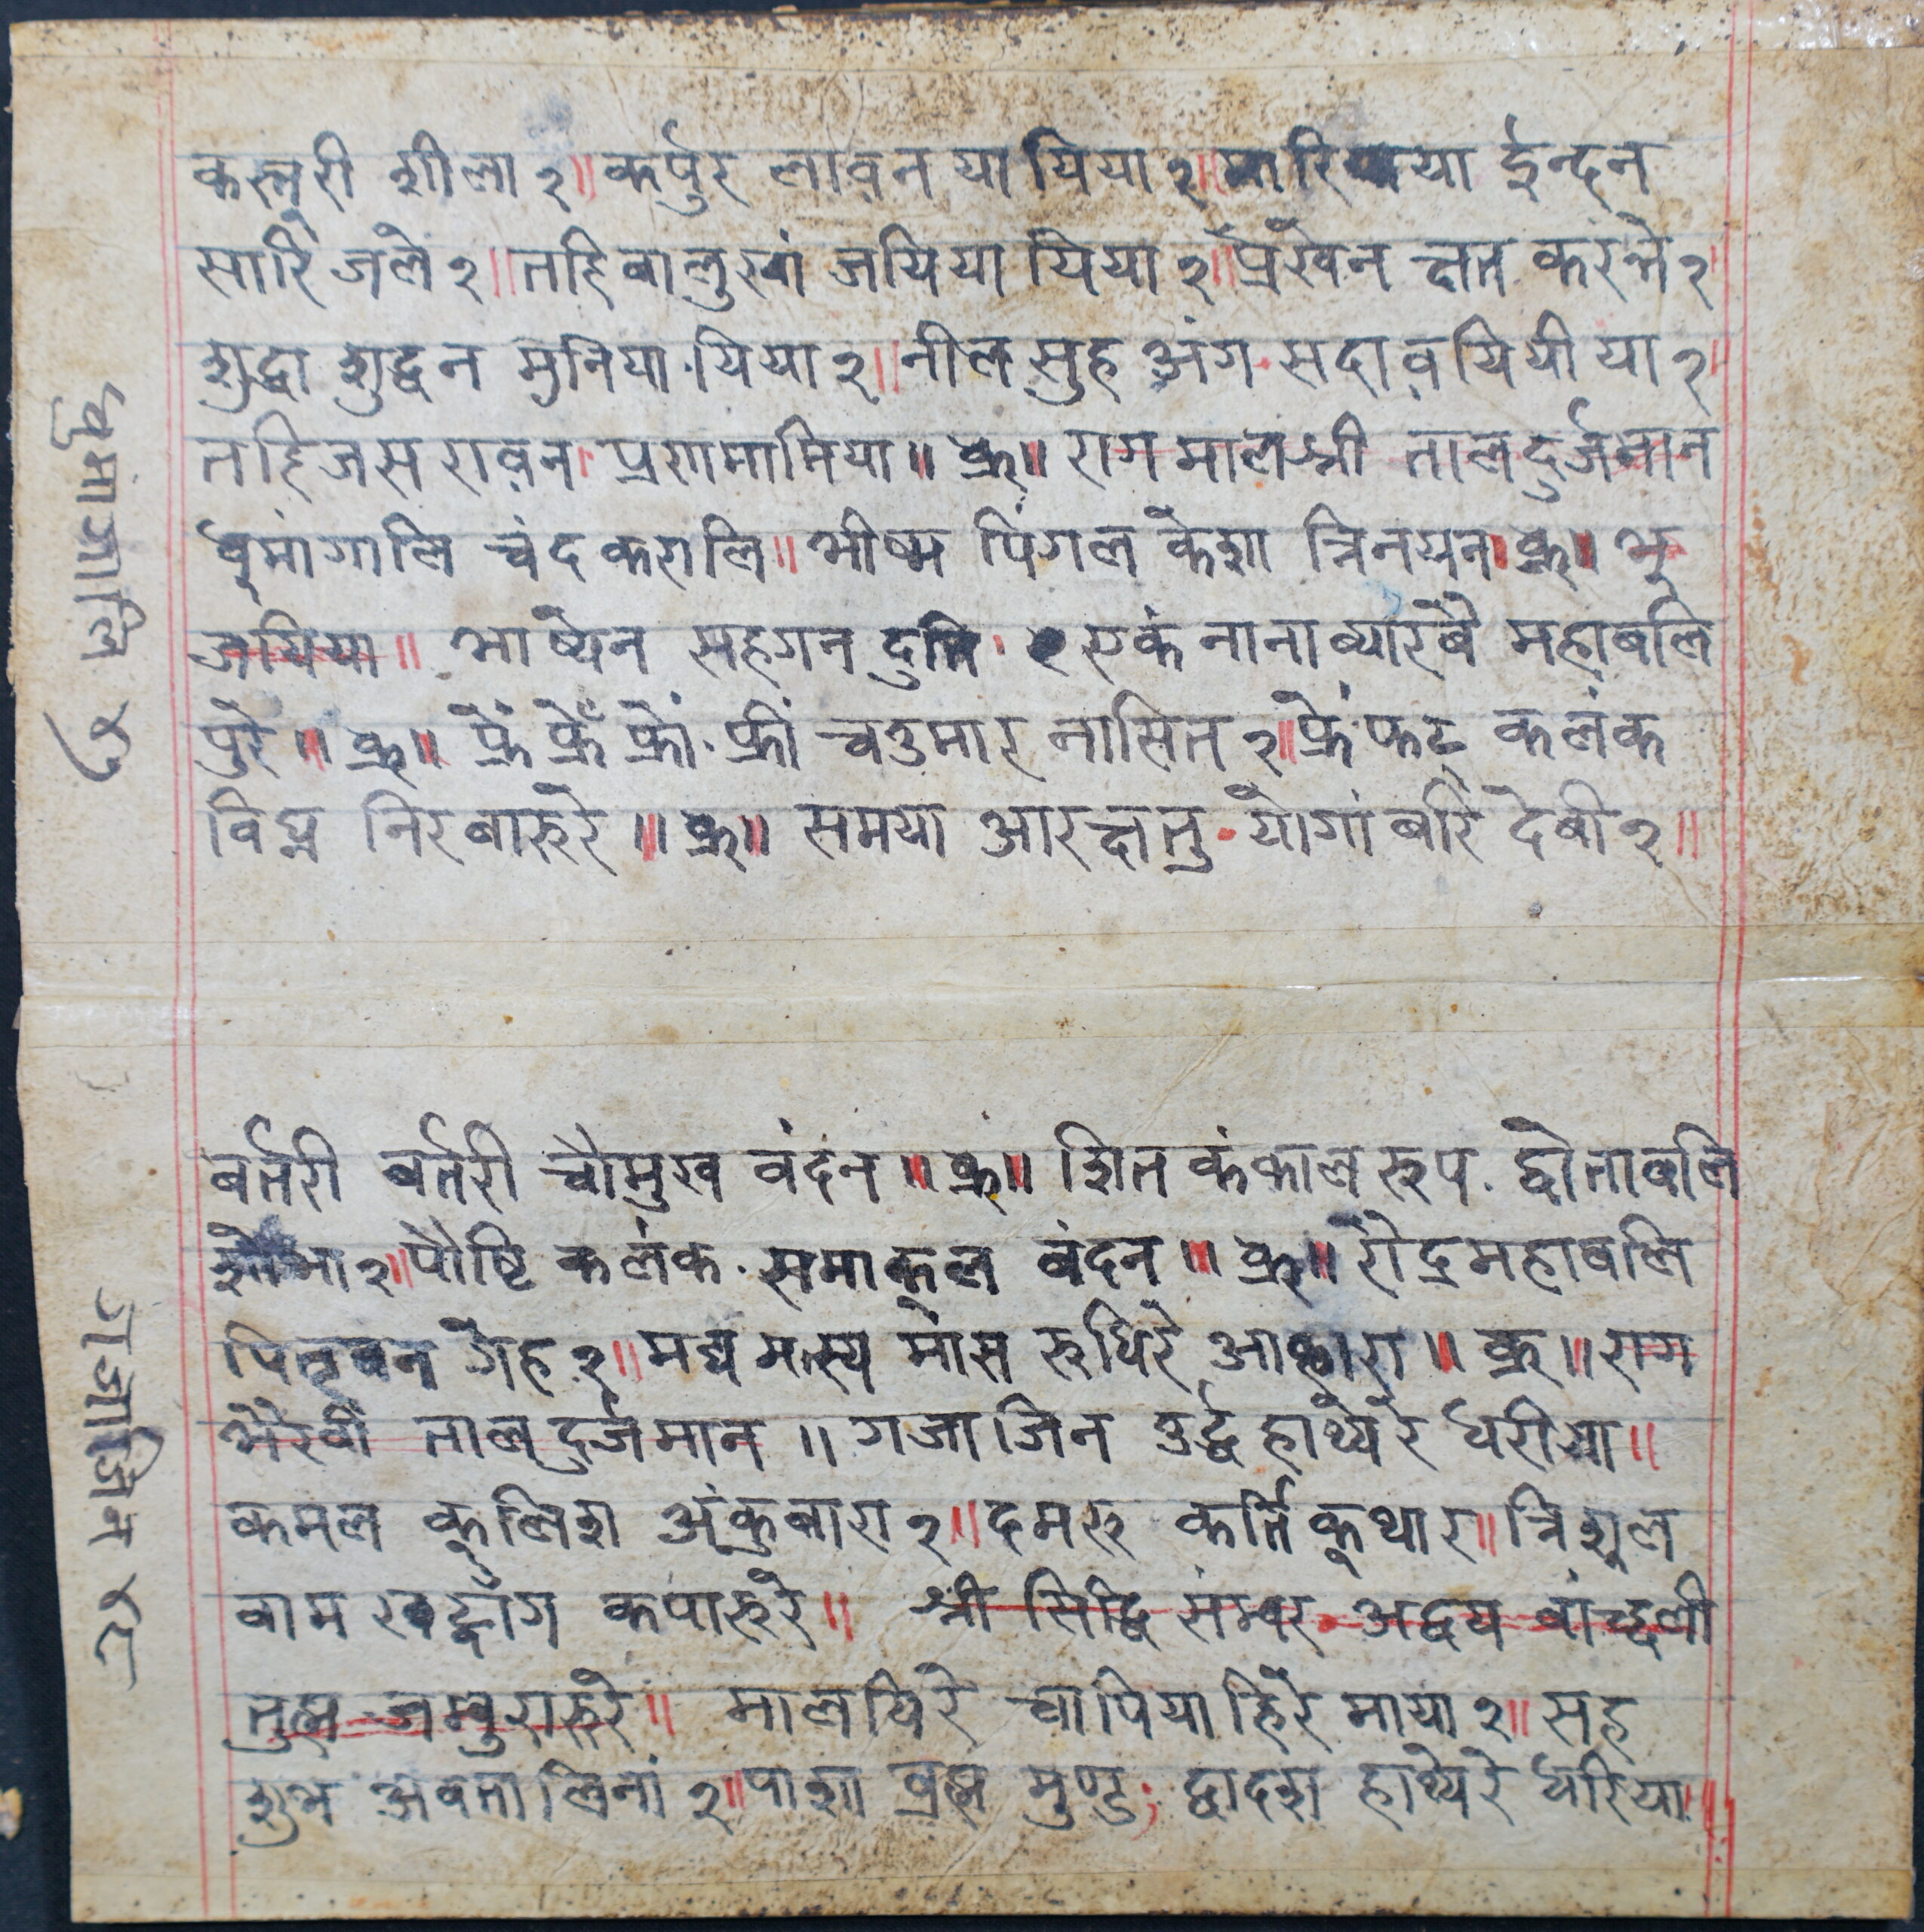 कस्तुरी शीला २॥ कर्पुर लावन यायिया २॥ मारि या ईन्दन
सारिं जले २॥ तहि बालुखां जयिया यिया २॥ प्रेंखेन क्षत करन्ते २॥
शुद्धा शुद्धन मुनिया यिया २॥ नील सुह अंग सदावयियीया २॥
तहि जस रावन प्रणमामिया॥ क्रु॥ राग मालश्री ताल दुर्जमान
धुमांगालि चंद करालि॥ भीष्म पिंगल केशा त्रिनयन॥ क्रु॥ भु
जयिया॥ भाष्येन सहगन दुति। २ एकं नानाव्यारवै महाबलि
पुरे॥ क्रु॥ फ्रें फ्रें फ्रों फ्रीं चउमार नासित २॥ फ्रें फट् कलंक
विघ्न निरबारुरे॥ क्रु॥ समया आरक्षतु योगांबरि देबी २॥
बर्तरी बर्तरी चौमुख वंदन॥ क्रु॥ शित कंकाल रुप द्वोताबलि
शोभा २॥ पौष्टि कलंक समाकुल बंदन॥ क्रु॥ रौद्र महाबलि
पितृबन गेह २॥ मद्य मत्स्य मांस रुधिरे आहारा॥ क्रु॥ राग
भैरवी ताल दुर्जमान॥ गजाजिन उर्द्ध हाथ्येरे धरीया॥
कमल कुलिश अंकुबारा २॥ दमरु कर्ति कुथार॥ त्रिशुल
बाम खट्वाँग कपारुरे॥ श्री सिद्धि संम्बर अद्वय बांच्छली
तुह्म जम्बुरारुरे॥ मालयिरे चापियाहिरे माया २॥ सह
शुभ अवमालिनां २॥ पाश ब्रह्म मुण्ड द्वादश हाथ्येरे धरिया॥
धुमांगालि ७
गजाजिन ८